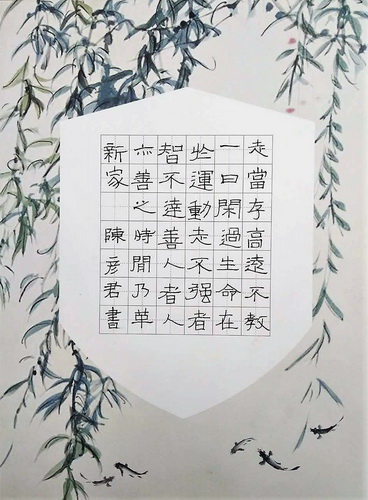 志當存高遠不教
一日閑過生命在
於運動志不强者
智不達善人者人
亦善之時間乃革
新家 陳彦君書